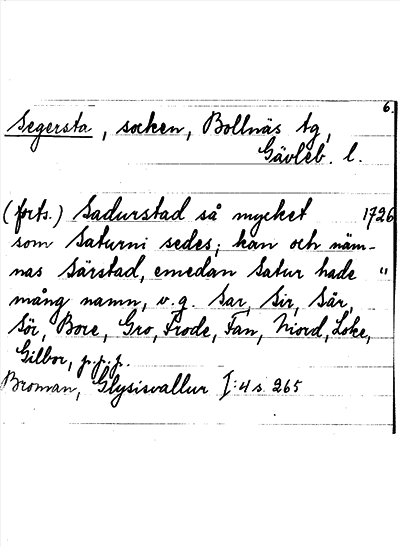 6.
Segersta, socken, Bollnäs tg,
Gävleb. l.
(forts.) Sadurstad så mycket 1726
som Saturni sedes; kan och näm-
nas Särstad, emedan Satur hade "
mång namn, v.g. Sar, Sir, Sår,
Sör, Bore, Gro, Frode, Fan, Niord, Loke,
Gilbor, p.p.p.
Broman, Glysisvallur I:4 s. 265